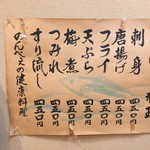 刺身 四五〇円
唐揚げ 四五〇円
フライ 四五〇円
天ぷら 四五〇円
梅煮 四五〇円
つみれ 四五〇円
すり流し 四五〇円
のんべえの健康料理